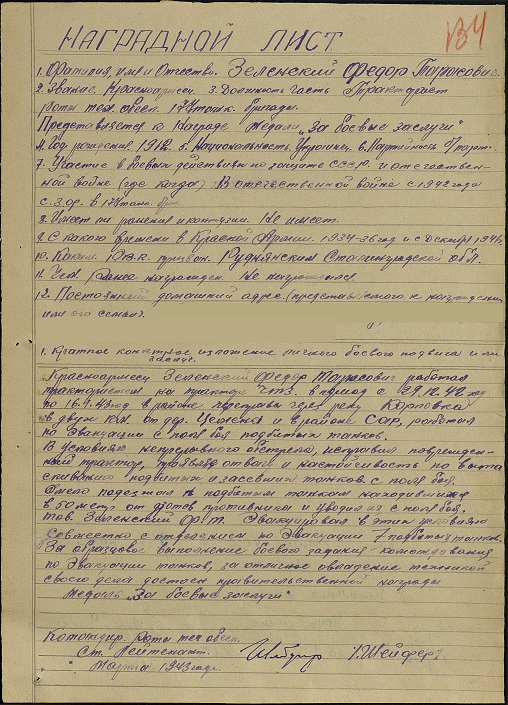 134
НАГРАДНОЙ ЛИСТ
1. Фамилия, имя и Отчество. Зеленский Федор Тарасович.
2. Звание. Красноармеец. 3. Должность часть Тракторист
роты тех. обесп. 174 танк. бригады.
Представляется к Награде Медали „За боевые заслуги"
4. Год рождения 1912. 5. Национальность Украинец 6. Партийность б/парт.
7. Участие в боевых действиях по защите СССР. и отечествен-
ной войне (где когда) В отечественной войне с 1942 года
в 174 танк. бр.
8. Имеет ли ранения и контузии. Не имеет.
9. С какого времени в Красной Армии. 1934-36 год и с Декабря 1941
10. Каким РВК призван. Руднянским Сталинградской обл.
11. Чем Ранее награжден. Не награждался.
12. Постоянный домашний адрес. (представляемого к награждению
или его семьи.
1. Краткое конкретное изложение личного боевого подвига или
заслуг.
Красноармеец Зеленский Федор Тарасович работая
трактористом на тракторе ЧТЗ. в период с 29.12.42 год
по 16.1.43 год в районе переправы через реку Карповка
в двух км. от дер. и в районе работал
по Эвакуации с поля боя подбитых танков.
В условиях непрерывного обстрела, исправил повержден-
ный трактор, проявил отвагу и настойчивость по выта
скиванию подбитых и засевших танков с поля боя.
Смело подъезжал к подбитым танкам находившимся
в 50 метр от дзотов противника и уводил их с поля боя.
тов. Зеленский Ф.Т. Эвакуировал в этих условиях
Совместно с отделением по Эвакуации 7 подбитых танков.
За образцовое выполнение боевого задания командования
по эвакуации танков, за отличное овладение техникой
своего дела достоен правительственной награды
Медаль „За боевые заслуги"
Командир. роты тех обесп.
Ст. Лейтенант. /Шейфер/
„ " Марта 1943 года.